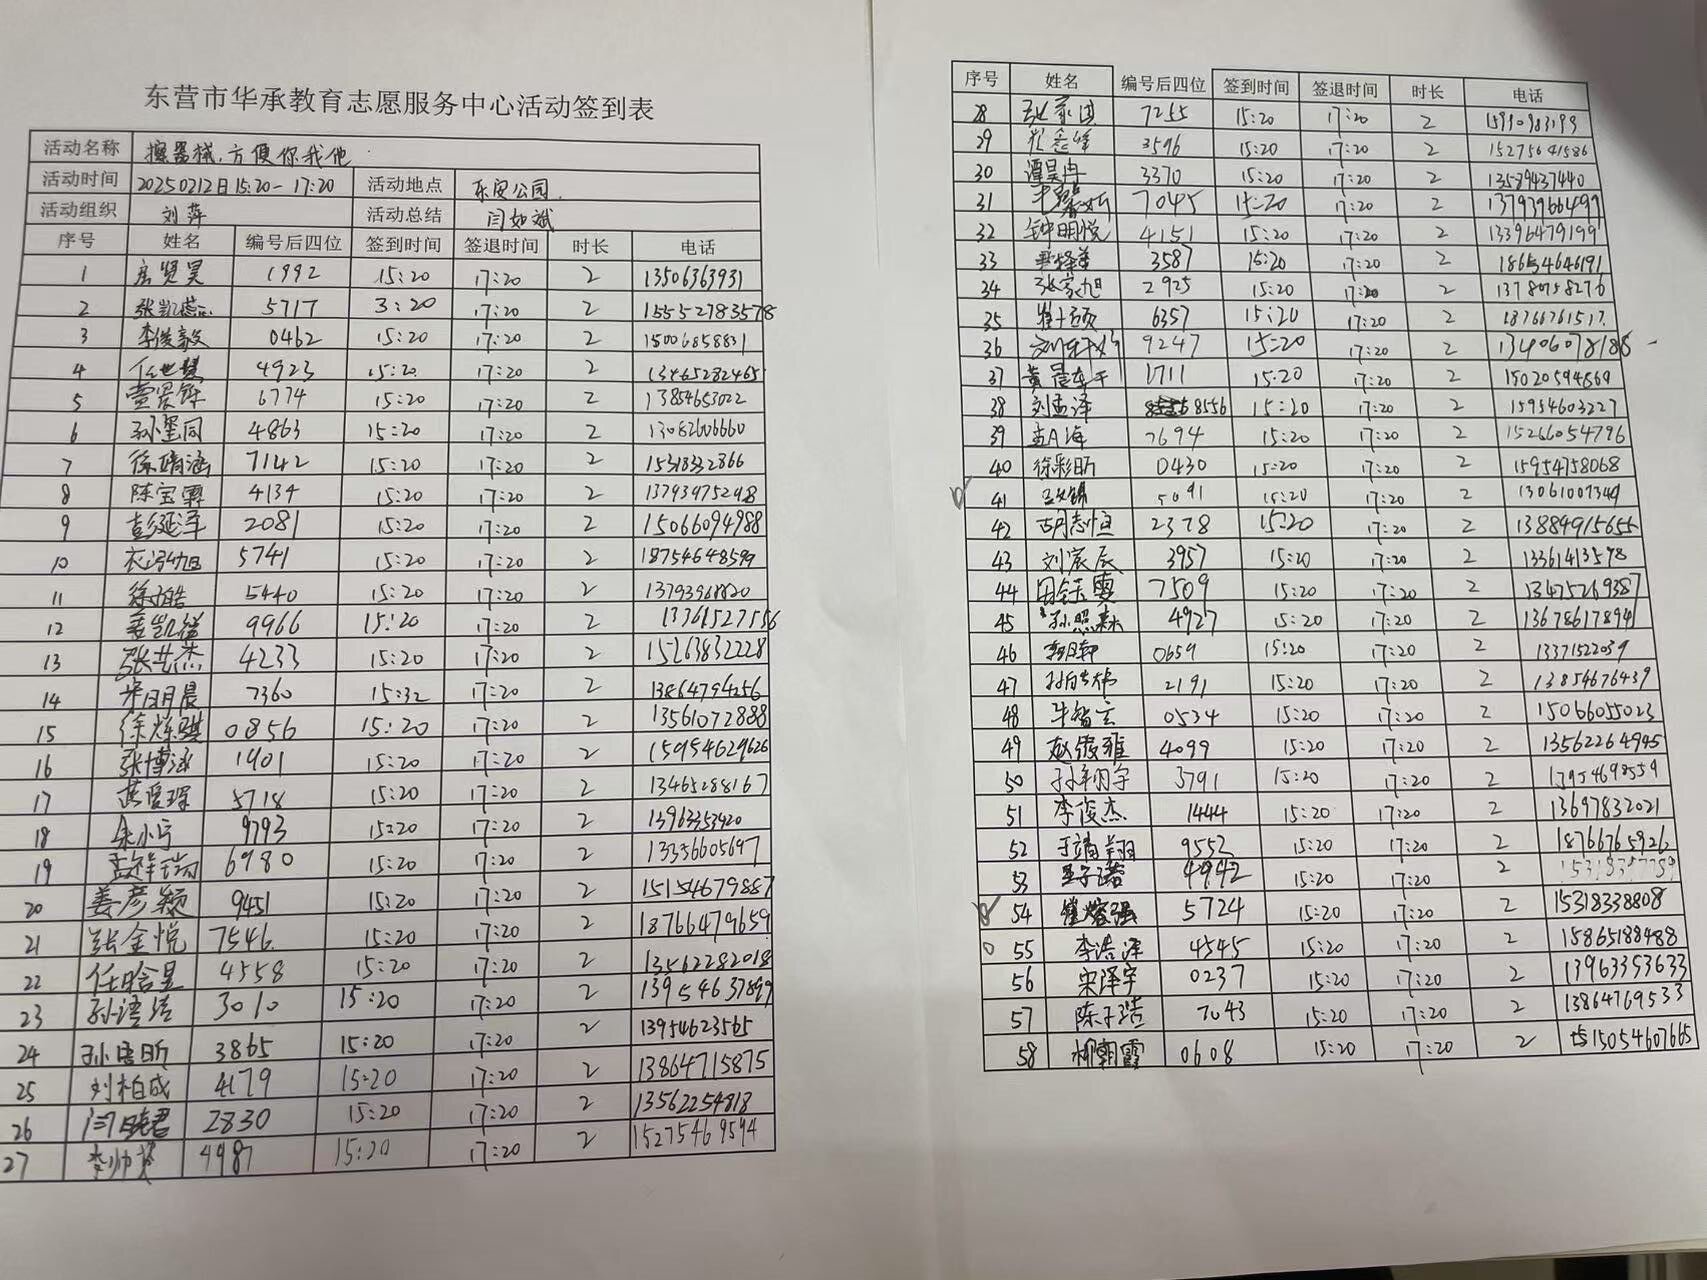 东营市华承教育志愿服务中心活动签到表
活动名称 擦器械,方便你我他
活动时间 20250212日15:20-17:20 活动地点 东安公园.
活动组织 刘萍 活动总结 闫如斌
序号 姓名 编号后四位 签到时间 签退时间 时长 电话
1 房贤昊 1992 15:20 17:20 2 13506363931
2 张凯 5717 3:20 17:20 2 15552783578
3 李俊毅 0462 15:20 17:20 2 15006858831
4 任世慧 4923 15:20 17:20 2 13465282465
5 6774 15:20 17:20 2 13854653022
6 孙玺同 4863 15:20 17:20 2 13082606660
7 徐靖涵 7142 15:20 17:20 2 15318332866
8 陈宝霖 4134 15:20 17:20 2 13793975298
9 彭延泽 2081 15:20 17:20 2 15066094988
10 衣泓旭 5741 15:20 17:20 2 18754648599
11 徐皓 5440 15:20 17:20 2 13793968820
12 姜凯祥 9966 15:20 17:20 2 13361527556
13 张艺杰 4233 15:20 17:20 2 15263832228
14 7360 15:32 17:20 2 13864794256
15 徐烁骐 0856 15:20 17:20 2 13561072888
16 张博涵 1901 15:20 17:20 2 15954629626
17 5718 15:20 17:20 2 13465288167
18 朱小宁 9793 15:20 17:20 2 13963353420
19 孟祥瑞 6980 15:20 17:20 2 13356605697
20 姜彦颖 9451 15:20 17:20 2 15154679887
21 张金悦 7546 15:20 17:20 2 18766479659
22 任晗昱 4558 15:20 17:20 2 13562282018
23 孙语浩 3010 15:20 17:20 2 13954637899
24 孙 昕 3865 15:20 17:20 2 13954623565
25 刘柏成 4179 15:20 17:20 2 13864715875
26 闫晓君 2830 15:20 17:20 2 13562254818
27 李帅 4987 15:20 17:20 2 15275469594
序号 姓名 编号后四位 签到时间 签退时间 时长 电话
28 张家琪 7255 15:20 17:20 2 15910983193
29 3596 15:20 17:20 2 15275641586
30 谭昊冉 3370 15:20 17:20 2 13589437440
31 7045 15:20 17:20 2 13793966499
32 钟明悦 4151 15:20 17:20 2 13396479199
33 3587 15:20 17:20 2 18654646191
34 张家旭 2925 15:20 17:20 2 13780758276
35 6357 15:20 17:20 2 18766761517
36 9247 15:20 17:20 2 13406078188
37 黄晨 1711 15:20 17:20 2 15020594669
38 刘孟泽 8556 15:20 17:20 2 15954603227
39 7694 15:20 17:20 2 15266054796
40 徐彩昕 0430 15:20 17:20 2 15954758068
41 5091 15:20 17:20 2 13061007349
42 胡志恒 2378 15:20 17:20 2 13884915655
43 刘宸辰 3957 15:20 17:20 2 13361413598
44 田钰雯 7509 15:20 17:20 2 13475269387
45 孙照森 4927 15:20 17:20 2 13678617894
46 0659 15:20 17:20 2 13371522039
47 2191 15:20 17:20 2 13854676439
48 牛智玄 0534 15:20 17:20 2 15066055023
49 赵俊雅 4099 15:20 17:20 2 13562264945
50 3791 15:20 17:20 2 17954698559
51 李俊杰 1444 15:20 17:20 2 13697832021
52 于靖翔 9552 15:20 17:20 2 18766765926
53 4942 15:20 17:20 2
54 5724 15:20 17:20 2 15318338808
55 李浩泽 4545 15:20 17:20 2 15865188488
56 宋泽宇 0237 15:20 17:20 2 13963353633
57 陈子浩 7043 15:20 17:20 2 13864769533
58 柳朝霞 0608 15:20 17:20 2 15054607665